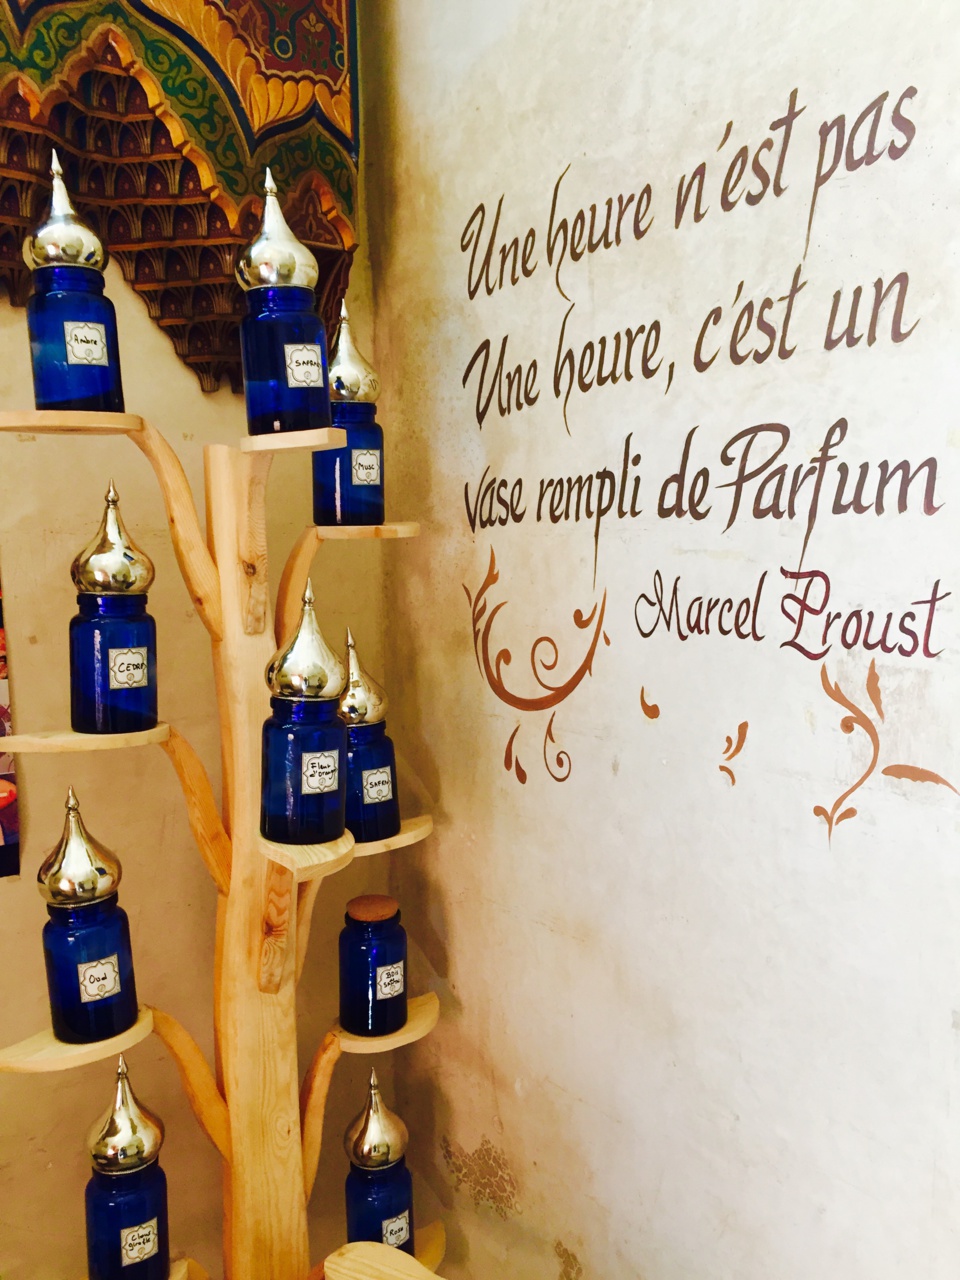 Une heure n'est pas
Une heure, c'est un
vase rempli de Parfum
Marcel Proust
Ambre
SAFRAN
Musc
CEDRE
Fleur
d'Oranger
SAFRAN
Oud
Bois
Clous
girofle
Rose